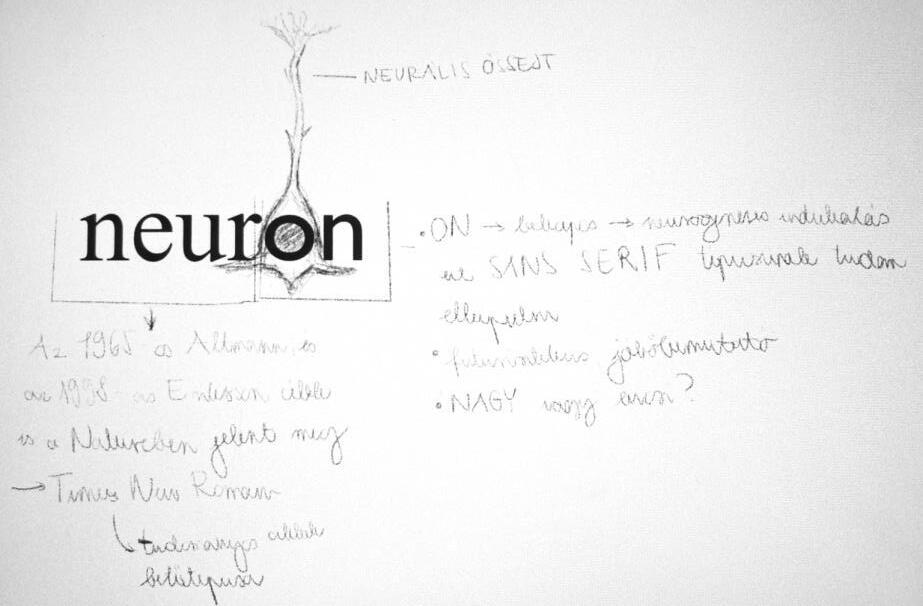 NEURÁLIS ŐSSEJT
neuron
• ON → bekapcs → neurogenezis indukálás
SANS SERIF típusúnak tudom
elképzelni
• futurisztikus, jövőbemutató
• NAGY vagy kicsi?
Az 1965-ös Altmann, és
az 1998-as Eriksson cikk
is a Natureben jelent meg
→ Times New Roman
tudományos cikkek
betűtípusa